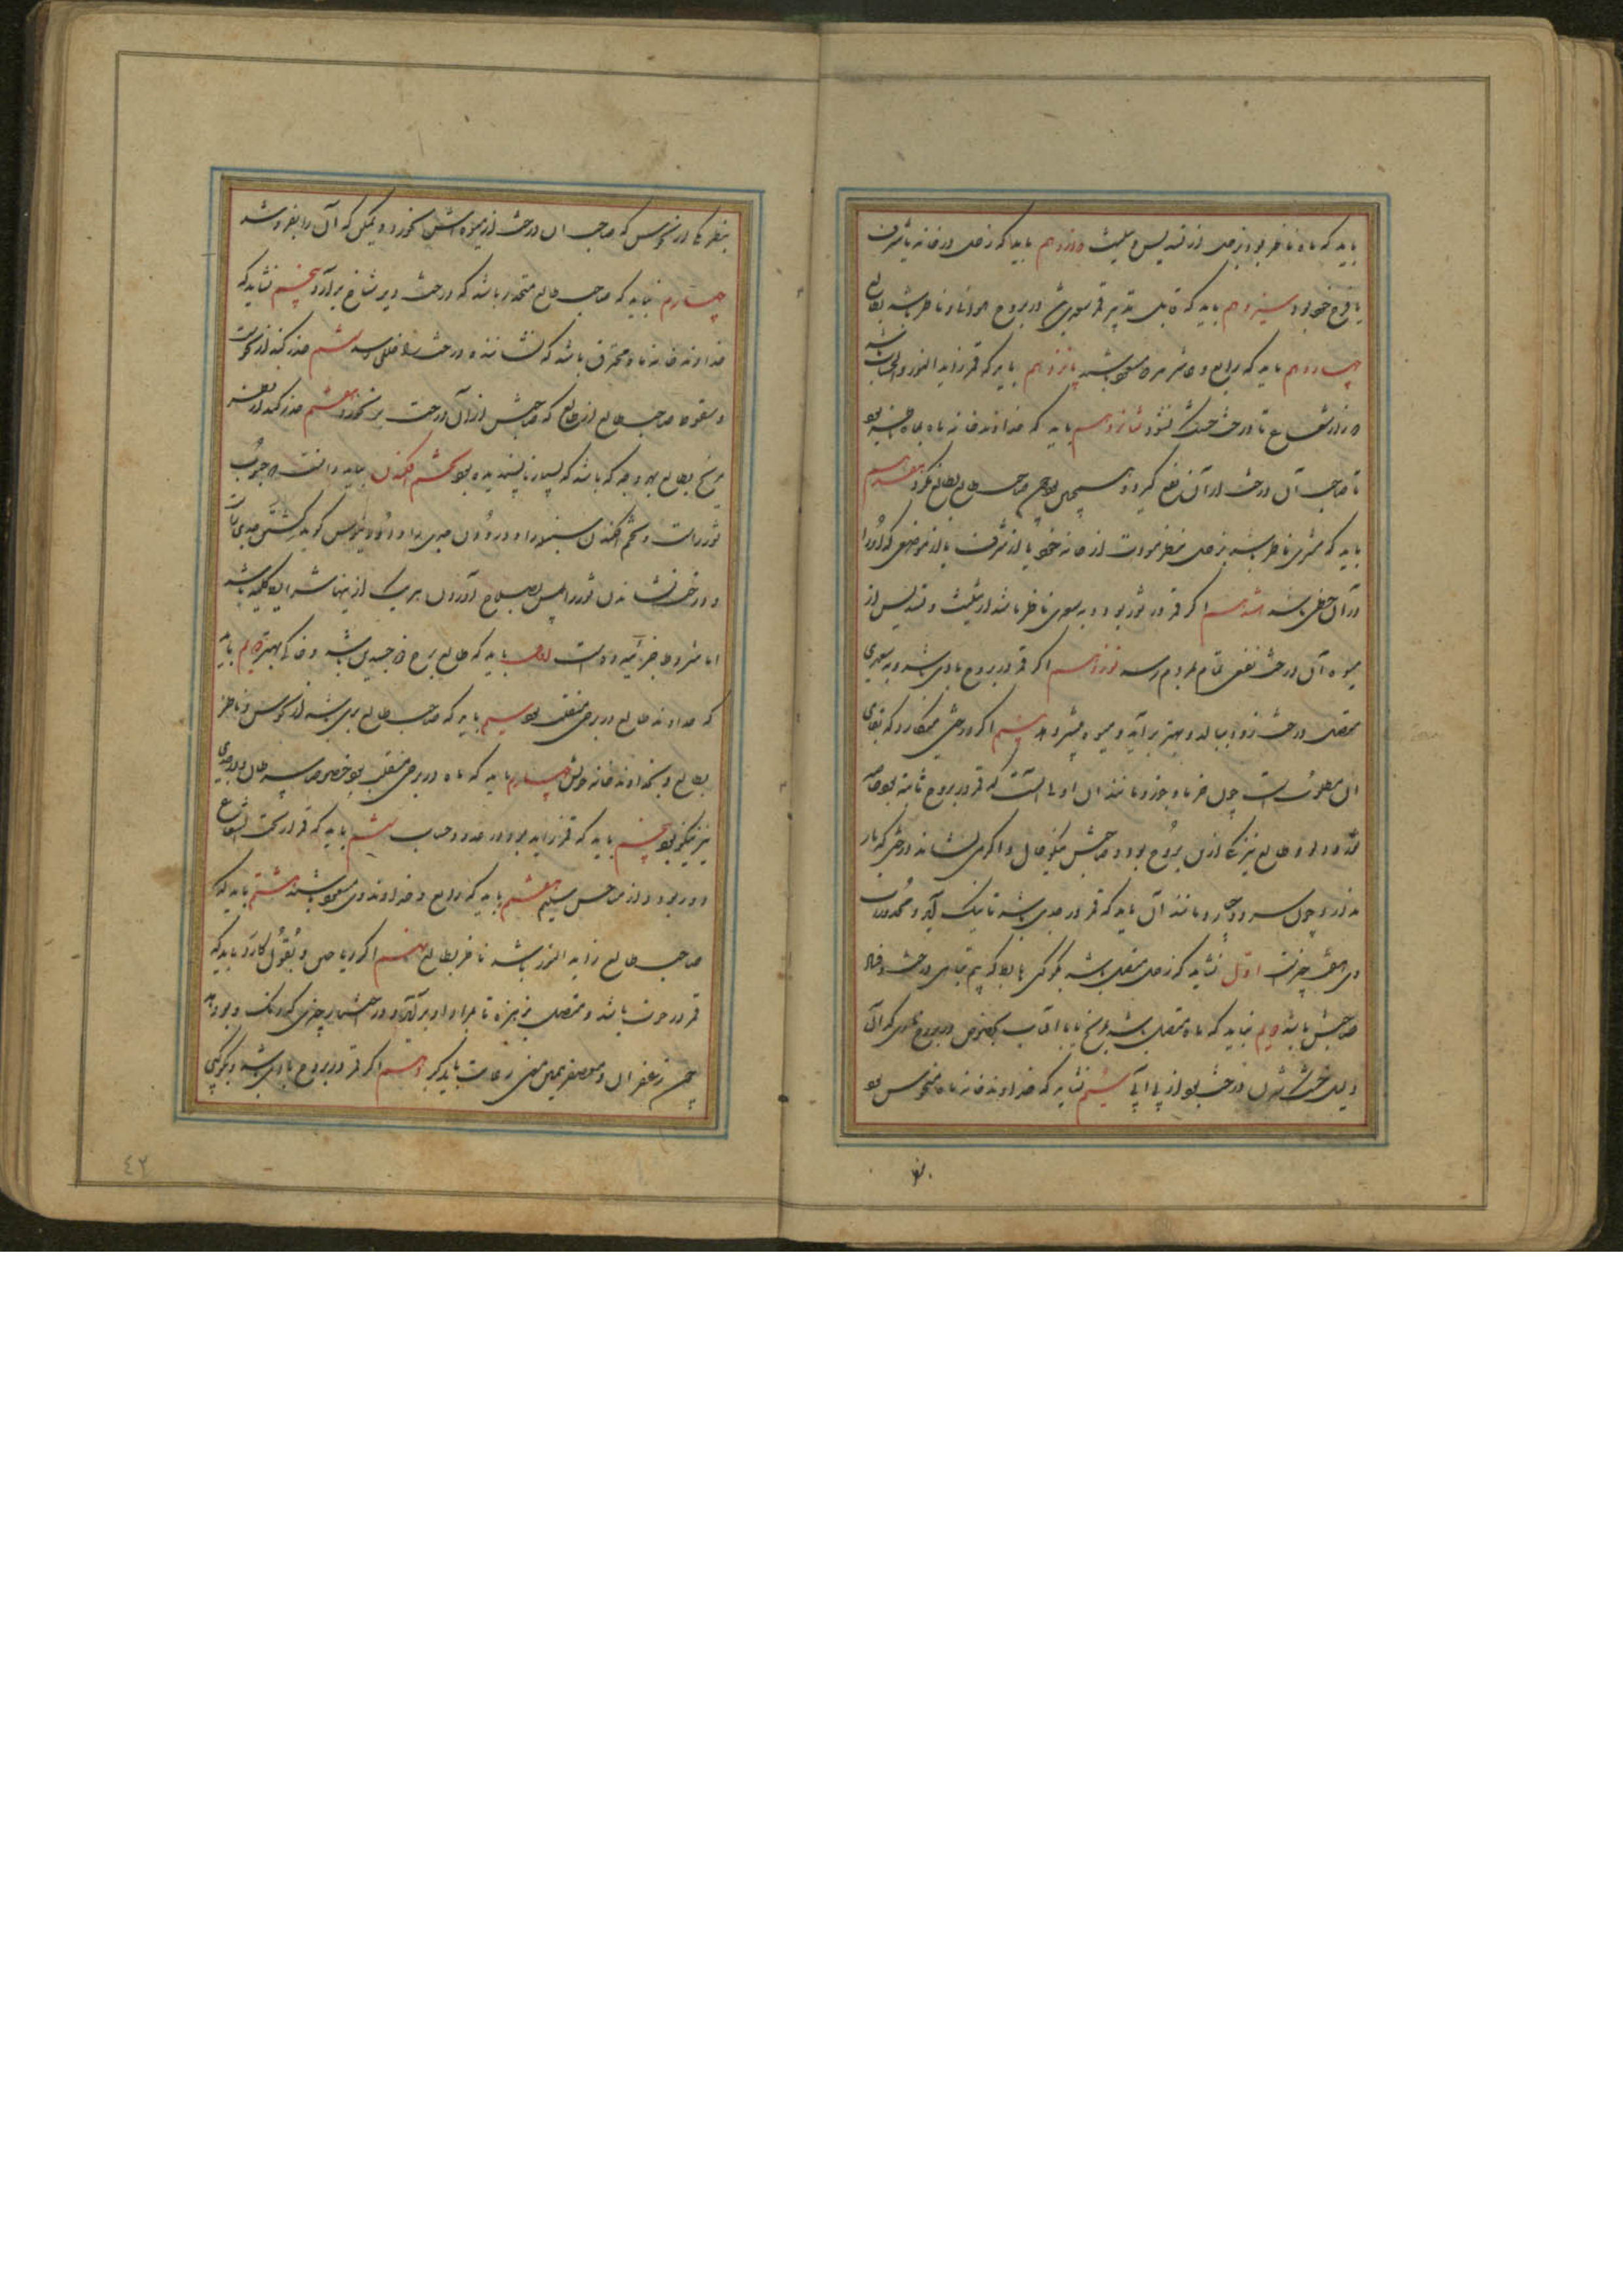 باید که ماه ناظر بود بزحل از تسدیس و تثلیث دوازدهم باید که زحل در خانه یا شرف
یا فرح خود بود سیزدهم باید که قابل تدبیر قمر سعدی باشد در بروج هوائی و ناظر باشد بطالع
چهاردهم باید که رابع و عاشر هر دو مسعود باشند پانزدهم باید که قمر زاید النور و الحساب باشد
تا درخت خشک نشود شانزدهم باید که خداوند خانه ماه بماه
تا صاحب آن درخت از آن نفع گیرد و همچنین صاحب طالع بطالع نگرد هفدهم
باید که مشتری ناظر باشد بزحل بنظر مودت از خانه خود یا از شرف یا از موضعی که او را
در آن حظی باشد هشدهم اگر قمر در ثور بود و بدو سعدی ناظر باشد از تثلیث و تسدیس از
میوه آن درخت نفعی تمام بمردم رسد نوزدهم اگر قمر در بروج بادی باشد و بسعدی
متصل درخت زود ببالد و بهتر برآید و میوه بیشتر دهد بیستم اگر درختی میکارد که بقای
آن مطلوب است چون خرما و جوز و مانند آن اولی آنست که قمر در بروج ثابته بود خاصه
و طالع نیز یکی ازین بروج بود و صاحبش نیکو حال و اگر می نشاند درختی که بار
ندارد چون سرو و چنار و مانند آن باید که قمر در جدی باشد تا نیک آید و محذورات
وی هفت چیزست اول نشاید که زحل متصل باشد بکوکبی
صاحبش باشد دویم نباید که ماه متصل باشد بمریخ یا با آفتاب بخصوص در بروج که آن
دلیل خشک شدن درخت بود از بی آبی سیم نشاید که خداوند خانه ماه منحوس بود
بنظر یکی از نحوس که صاحب آن درخت از میوه‌اش نخورد و یمکن که آن را بفروشد
چهارم نباید که صاحب طالع منحدر باشد که درخت دیر شاخ برآرد پنجم نشاید که
خداوند خانه ماه محترق باشد که نشاننده درخت را خللی رسد ششم حذر کنند از نحوست
و سقوط صاحب طالع از طالع که صاحبش از آن درخت بر نخورد هفتم حذر کنند از نظر
مریخ بطالع بهر وجه که باشد که بسیار ناپسندیده بود تخم افکندن بباید دانست که حبوب
ثور راست و تخم افکندن سنبله را و درودن جدی را و گوید کشتن جدی راست
و درخت نشاندن ثور را پس بصلاح آوردن هر یک ازینها شرایط کلیه باشد
اما مشروط جزئیه ده است اول باید که طالع برج ذو جسدین باشد و خاکی بهتر دویم باید
که خداوند طالع در برجی منقلب بود سیم باید که صاحب طالع بری باشد از نحوس و ناظر
بطالع و بخداوند خانه خویش چهارم باید که ماه در برجی منقلب بود خصوصا سرطان و در جدی
نیز نیکو بود پنجم باید که قمر زاید بود در عدد و حساب ششم باید که قمر از تحت الشعاع
دور بود و از مناحس سلیم هفتم باید که رابع و خداوند وی مسعود باشند هشتم باید که
صاحب طالع زاید النور باشد ناظر بطالع نهم اگر ریاحین و بقول کارد باید که
قمر در حوت باشد و متصل بزهره تا بمراد او برآید و در کشتن چیزی که رنگ و بوی دهد
چون زعفران و معصفر همین معنی رعایت باید کرد دهم اگر قمر در بروج بادی باشد و بکوکبی
٤٢